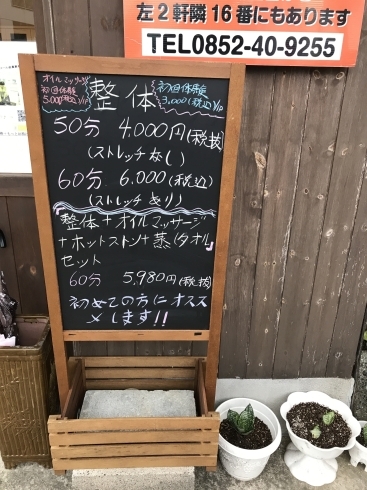 左2軒隣16番にもあります
TEL0852-40-9255
オイルマッサージ
初回体験
5,000(税込)
整体
初回体験
3,000(税込)
50分 4,000円(税抜)
(ストレッチなし)
60分 6,000(税込)
(ストレッチあり)
整体+オイルマッサージ
+ホットストン+蒸しタオル
セット
60分 5,980円(税抜)
初めての方にオスス
メします!!